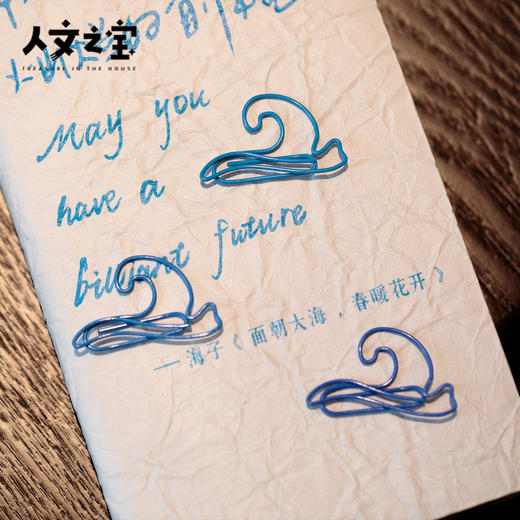 人文之宝
TREASURE IN THE HOUSE
May you
have a
brilliant future
—海子《面朝大海，春暖花开》